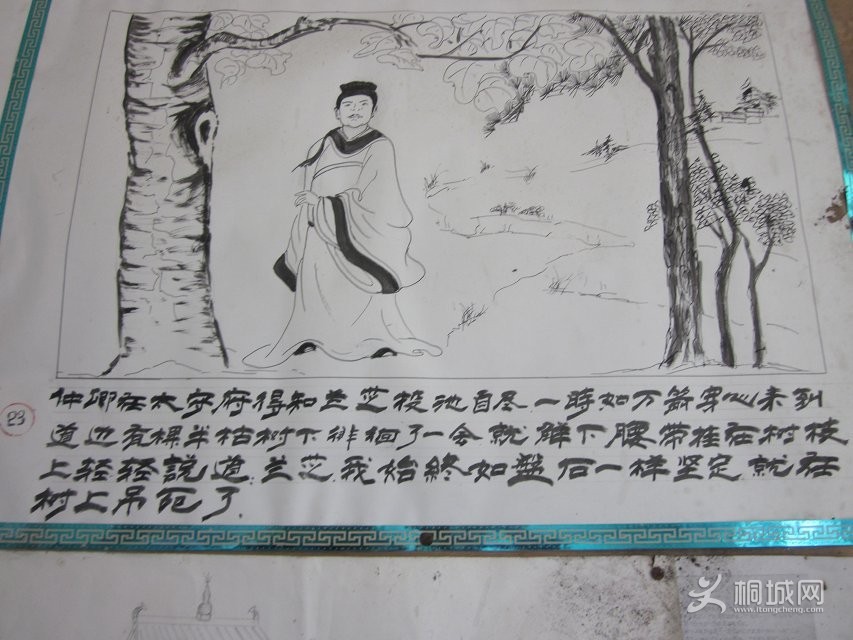 23
仲卿在太守府得知兰芝投池自尽.一時如万箭穿心来到
道边有棵半枯树下徘徊了一会就解下腰带挂在树枝
上轻轻説道.兰芝.我始終如盤石一样坚定.就在
树上吊死了.
桐城网
www.itongcheng.com